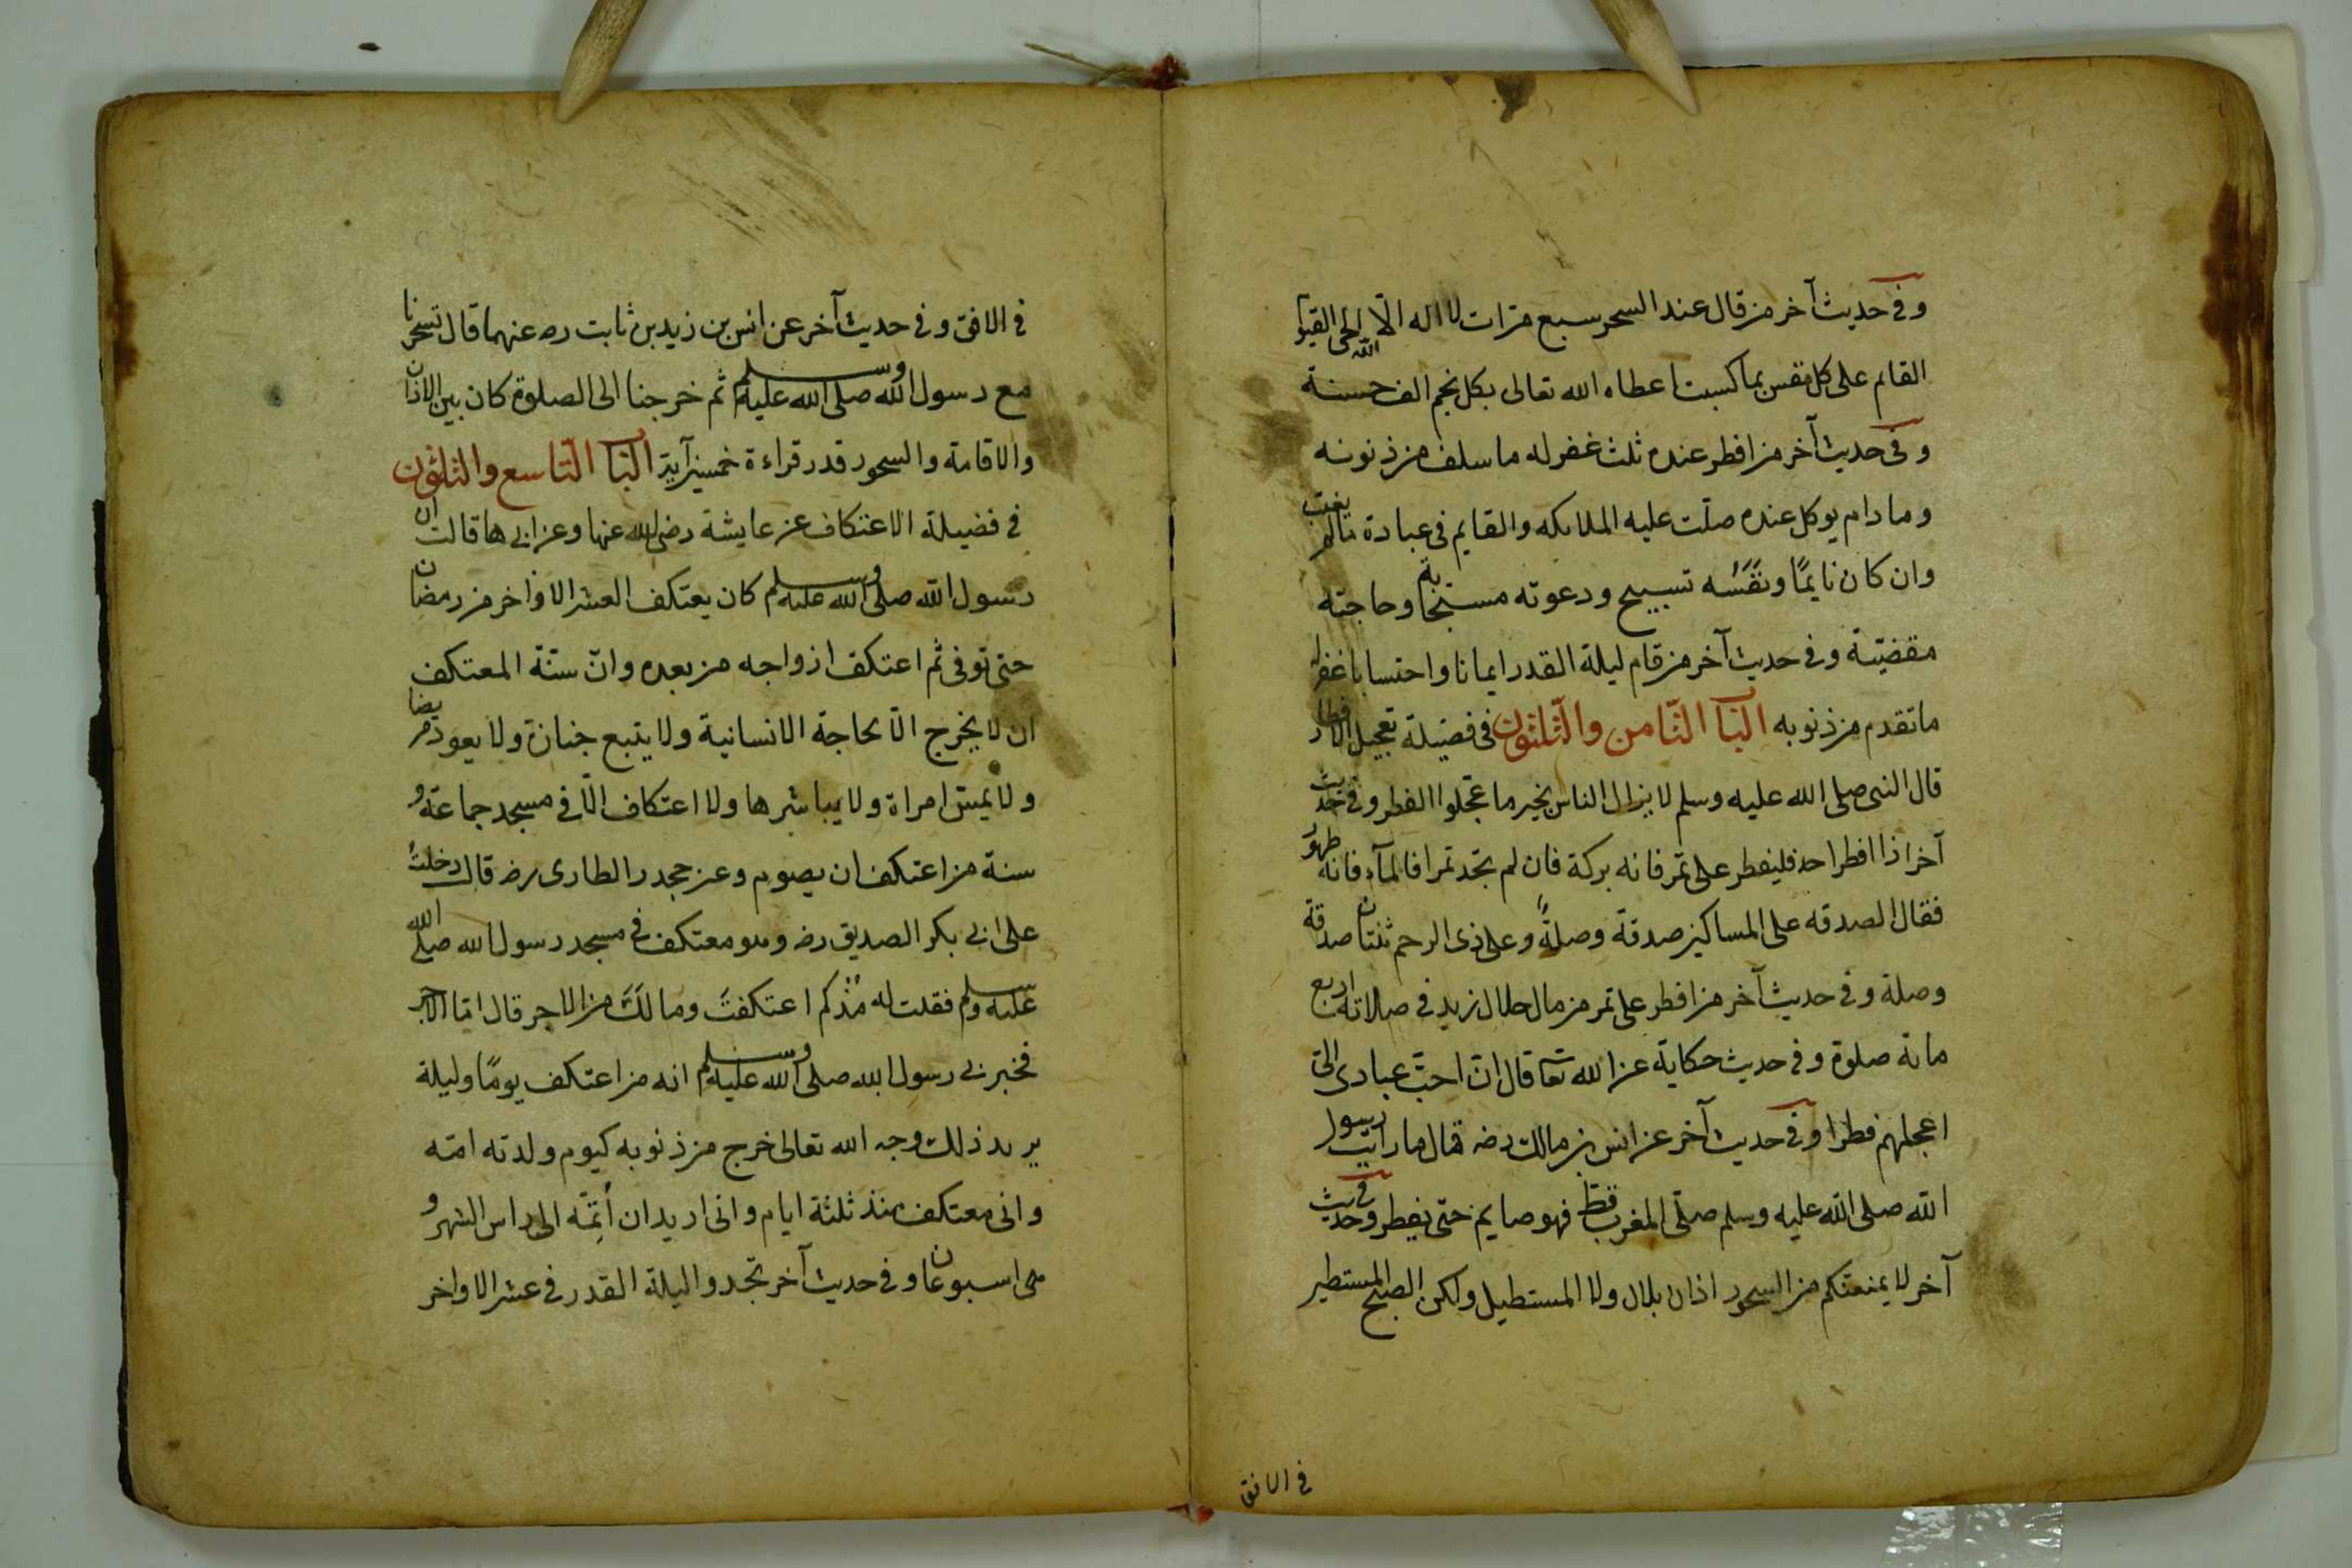 وفى حديث آخر من قال عند السحر سبع مرات لا اله الا الله الحى القيوم
القايم على كل نفس بما كسبت اعطاه الله تعالى بكل نجم الف حسنة
وفى حديث آخر من افطر عنده ثلث غفر له ما سلف من ذنوبه
وما دام يوكل عنده صلّت عليه الملائكه والقايم فى عبادة مالم يغتب
وان كان نايمًا ونَفَسُه تسبيح ودعوته مستجابة وحاجته
مقضيّة وفى حديث آخر من قام ليلة القدر ايمانا واحتسابا غفر له
ما تقدم من ذنوبه الباب الثّامن والثّلثون فى فضيلة تعجيل الافطار
قال النبى صلى الله عليه وسلم لا يزال الناس بخير ما عجّلوا الفطر وفى حديث
آخر اذا افطر احد فليفطر على تمر فانه بركة فان لم تجد تمرا فالمآء فانه طهور
فقال الصدقه على المساكين صدقة وصلةً وعلى ذى الرحم ثنتان صدقة
وصلة وفى حديث آخر من افطر على تمر من مال حلال زيد فى صلاته اربع
مائة صلوة وفى حديث حكاية عن الله تعا قال ان احبّ عبادى الىّ
اعجلهم فطرا وفى حديث آخر عن انس بن مالك رضه قال ما رايت رسول
الله صلى الله عليه وسلم صلّى المغرب قطّ فهو صايم حتى يفطر وفى حديث
آخر لا يمنعنكم من السحور اذان بلال ولا المستطيل ولكن الصبح المستطير
فى الافق
فى الافق وفى حديث آخر عن انس بن زيد بن ثابت ره عنهما قال تسحرنا
مع رسول الله صلى الله عليه وسلم ثم خرجنا الى الصلوة كان بين الاذان
والاقامة والسحور قدر قراءة خمسين آية الباب التاسع والثلثون
فى فضيلة الاعتكاف عن عايشة رضى الله عنها وعن ابيها قالت ان
رسول الله صلى الله عليه وسلم كان يعتكف العشر الاواخر من رمضان
حتى توفى ثم اعتكف ازواجه من بعده وانّ سنّة المعتكف
ان لا يخرج الّا لحاجة الانسانية ولا يتبع جنازة ولا يعود مريضا
ولا يمسّ امراة ولا يباشرها ولا اعتكاف الّا فى مسجد جماعة و
سنة من اعتكف ان يصوم وعن جحدر الطارى رضه قال دخلتُ
على ابى بكر الصديق رضه وهو معتكف فى مسجد رسول الله صلى الله
عليه وسلم فقلت له مُذْكم اعتكفتَ ومالَكَ من الاجر قال امّا الاجر
فخبرنى رسول الله صلى الله عليه وسلم انه من اعتكف يومًا وليلة
يريد ذلك وجه الله تعالى خرج من ذنوبه كيوم ولدته امّه
وانى معتكف منذ ثلثة ايام وانى اريد ان أتِمَّه الى راس الشهر و
اسبوعان وفى حديث آخر تجدوا ليلة القدر فى عشر الاواخر